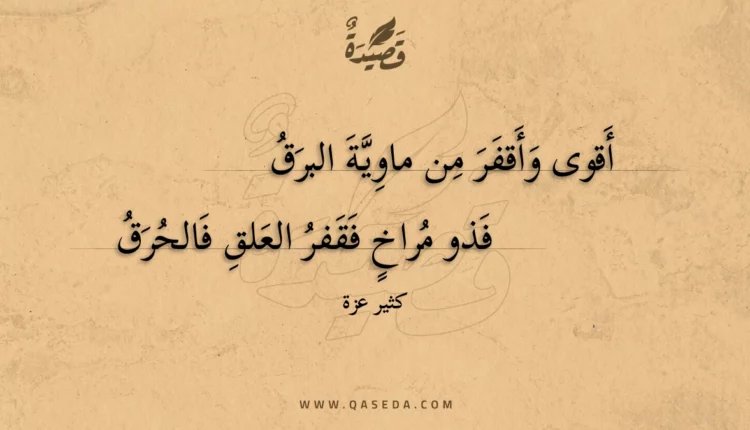 قَصِيْدَةٌ
أَقوى وَأَقفَرَ مِن ماوِيَّةَ البرَقُ
فَذو مُراخٍ فَقَفرُ العَلقِ فَالحُرَقُ
كثير عزة
WWW.QASEDA.COM